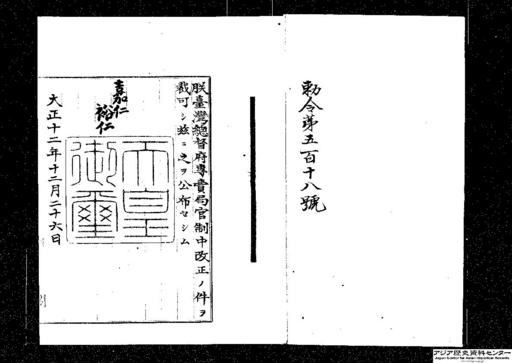 勅令第五百十八號
朕臺灣總督府專賣局官制中改正ノ件ヲ
裁可シ玆ニ之ヲ公布セシム
嘉仁
裕仁
天皇
御璽
大正十二年十二月二十六日
アジア歴史資料センター
Japan Center for Asian Historical Records